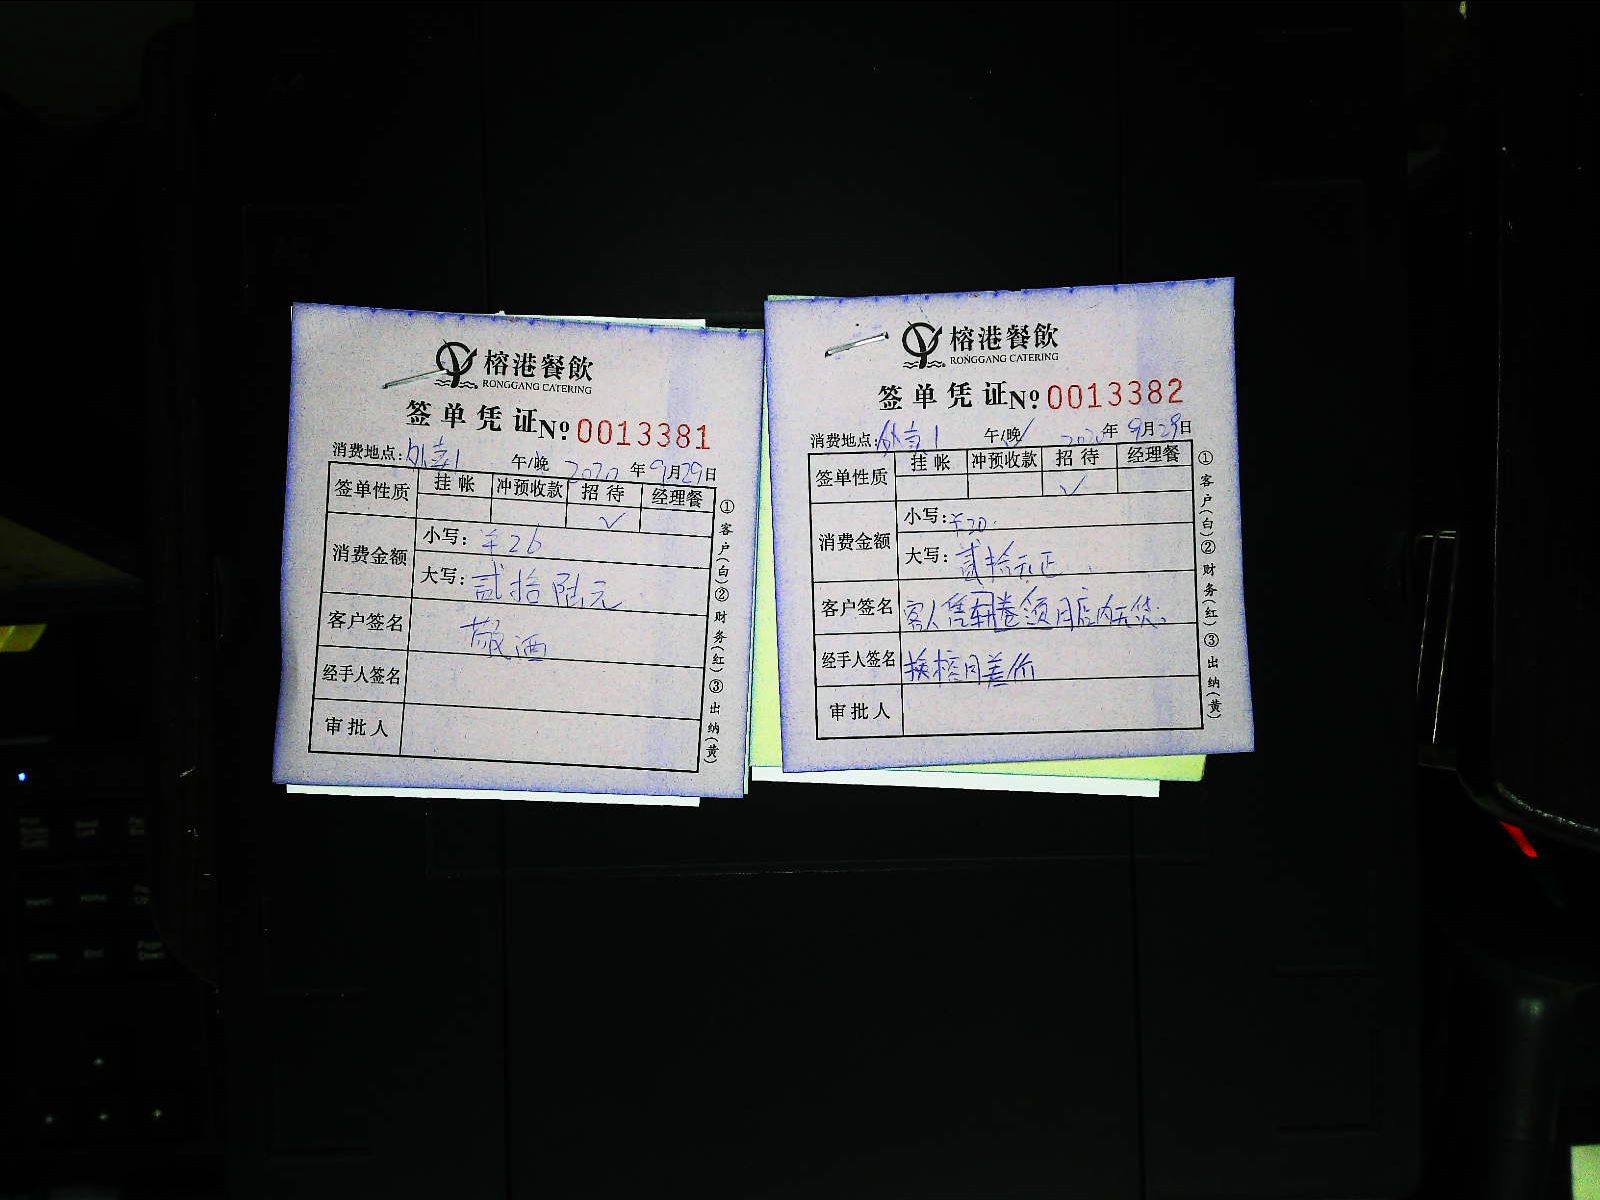 榕港餐飲
RONGGANG CATERING
签单凭证 № 0013381
消费地点: 外卖1 午/晚 2020年9月29日
签单性质 挂帐 冲预收款 招待 经理餐
✓
消费金额 小写: ¥26
大写: 贰拾陆元
客户签名 敬酒
经手人签名
审批人
①客户(白)②财务(红)③出纳(黄)
榕港餐飲
RONGGANG CATERING
签单凭证 № 0013382
消费地点: 外卖1 午/晚✓ 2020年9月29日
签单性质 挂帐 冲预收款 招待 经理餐
✓
消费金额 小写: ¥20.
大写: 贰拾元正
客户签名 客人 月店内无货.
经手人签名 换榕月差价
审批人
①客户(白)②财务(红)③出纳(黄)
Home
End
Page
Down